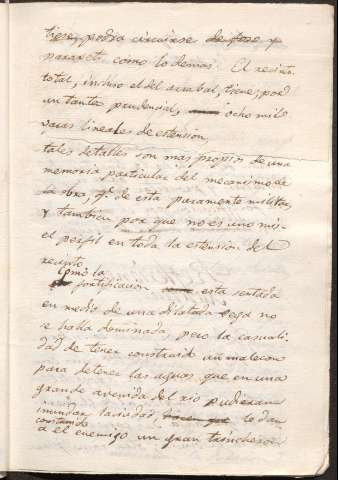 tiene, podra circuirse de foso y
parapeto como lo demas. El recinto
total, incluso el del arrabal, tiene, por
un tanteo prudencial, ocho mil
varas lineales de estension,
tales detalles son mas propios de una
memoria particular del mecanismo de
la obra, qᵉ. de esta puramente militar,
y tambien por que no es uno mis-
el perfil en toda la estension del
recinto
Como la
fortificacion esta sentada
en medio de una dilatada Vega no
se halla dominada, pero la casuali-
dad de tener construido un malecon
para detener las aguas que en una
grande avenida del rio pudieran
inundar la ciudad, hacen que le dan
construido
a el enemigo un gran trincheron